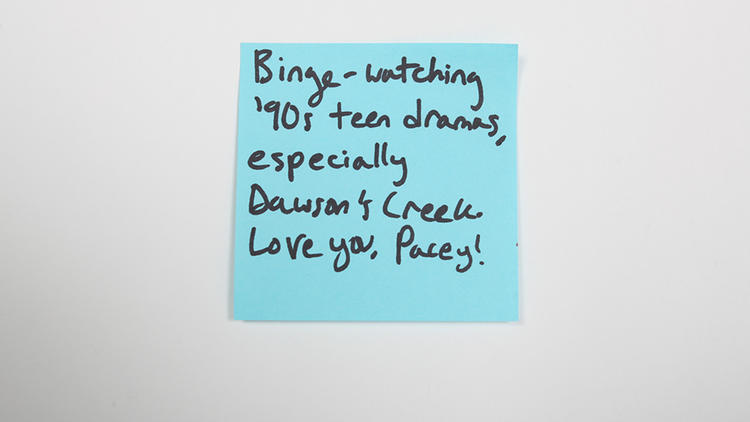 Binge-watching
'90s teen dramas,
especially
Dawson's Creek.
Love you, Pacey!